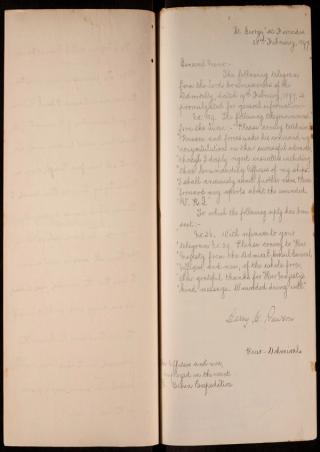 "St. George" at Benin
28th February, 1897
General Memo:-
The following telegram
from the Lords Commissioners of the
Admiralty, dated February, 1897, is
promulgated for general information:-
"No. 29. The following telegram received
from the Queen:- "Please convey to Admiral
"Rawson and forces under his command my
"congratulations on their successful advance,
"though I deeply regret casualties including
"three Commanding Officers of my ships.
"I shall anxiously await further news. Please
forward any reports about the wounded.
"V. R. I."
To which the following reply has been
sent:-
"No. 26. With reference to your
telegram No. 29. Please convey to Her
Majesty from the Admiral, Consul General,
Officers, and men, of the whole force,
their grateful thanks for Her Majesty's
"kind message. Wounded doing well."
Harry H. Rawson
Rear-Admiral
Officers and men,
in the recent
Benin Expedition